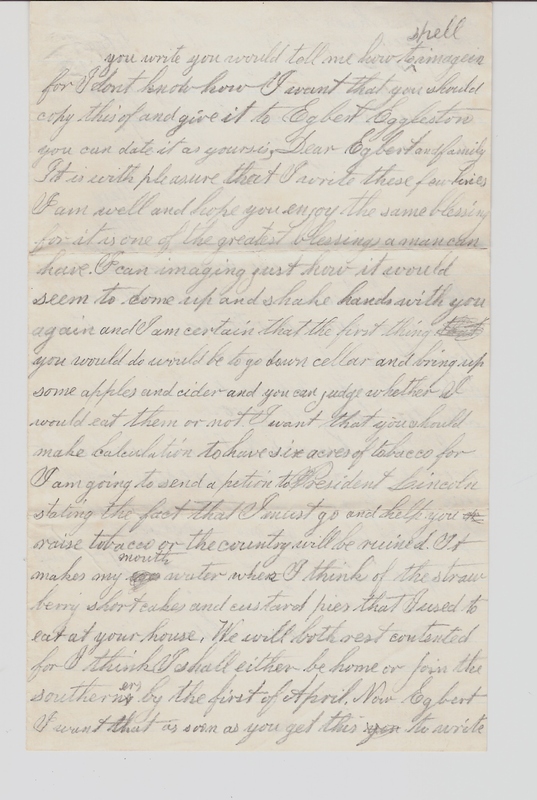 spell
you write you would tell me how to imagein
for I dont know how I want that you should
copy this of and give it to Egbert Eggleston
you can date it as yours is, Dear Egbert and family
It is with pleasure that I write these few lines
I am well and hope you enjoy the same blessing
for it is one of the greatest blessings a man can
have. I can imaging just how it would
seem to come up and shake hands with you
again and I am certain that the first thing
you would do would be to go down cellar and bring up
some apples and cider and you can judge whether I
would eat them or not I want that you should
make calculation to have six acres of tobacco for
I am going to send a petion to President Lincoln
stating the fact that I must go and help you
raise tobacco or the country will be ruined. It
makes my mouth water when I think of the straw
berry shortcakes and custard pies that I used to
eat at your house. We will both rest contented
for I think I shall either be home or join the
southerners by the first of April. Now Egbert
I want that as soon as you get this to write